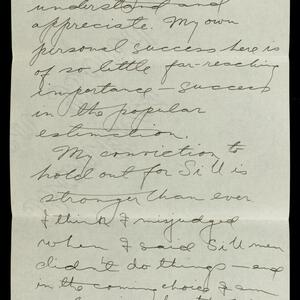 understand and
appreciate. My own
personal success here is
of so little far-reaching
importance — success
in the popular
estimation.
My conviction to
hold out for Si U is
stronger than ever
I think I misjudged
when I said Si U men
didn't do things — and
in the coming choice I am